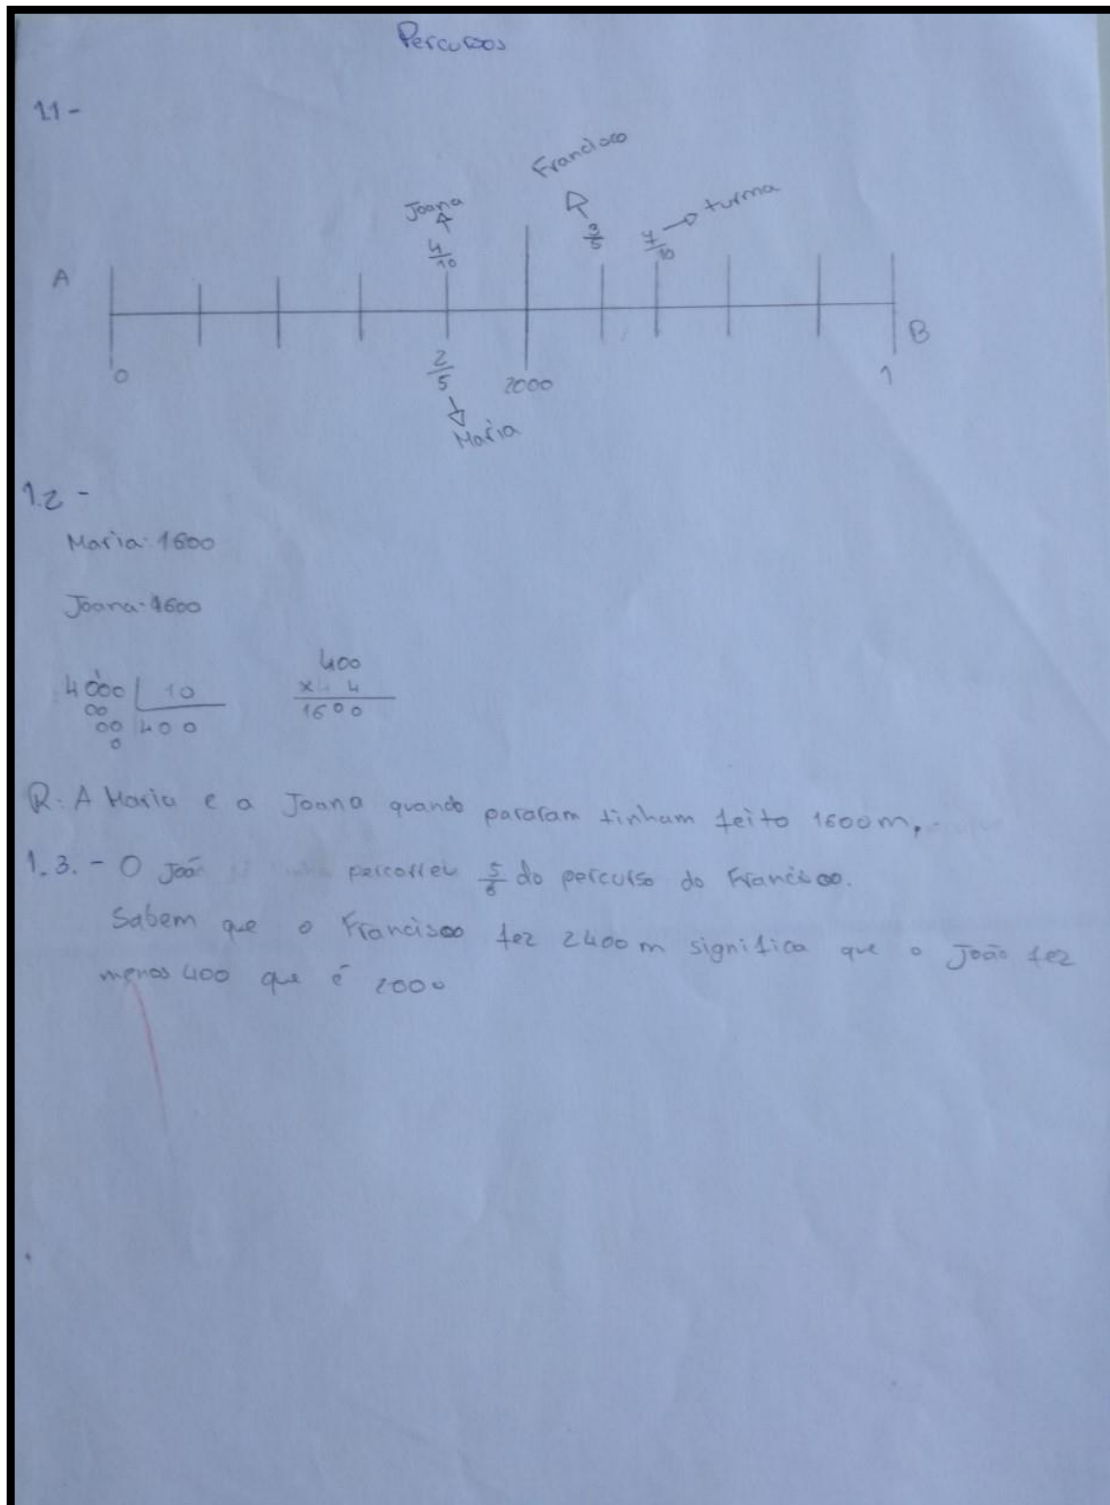 Percursos
1.1 -
Francisco
Joana
turma
4/10
3/5
7/10
A
B
0
2/5
2000
1
Maria
1.2 -
Maria: 1600
Joana: 1600
4000 | 10
00
00 400
0
400
x 4
1600
R: A Maria e a Joana quando pararam tinham feito 1600m.
1.3. - O João percorreu 5/6 do percurso do Francisco.
Sabem que o Francisco fez 2400 m significa que o João fez
menos 400 que é 2000